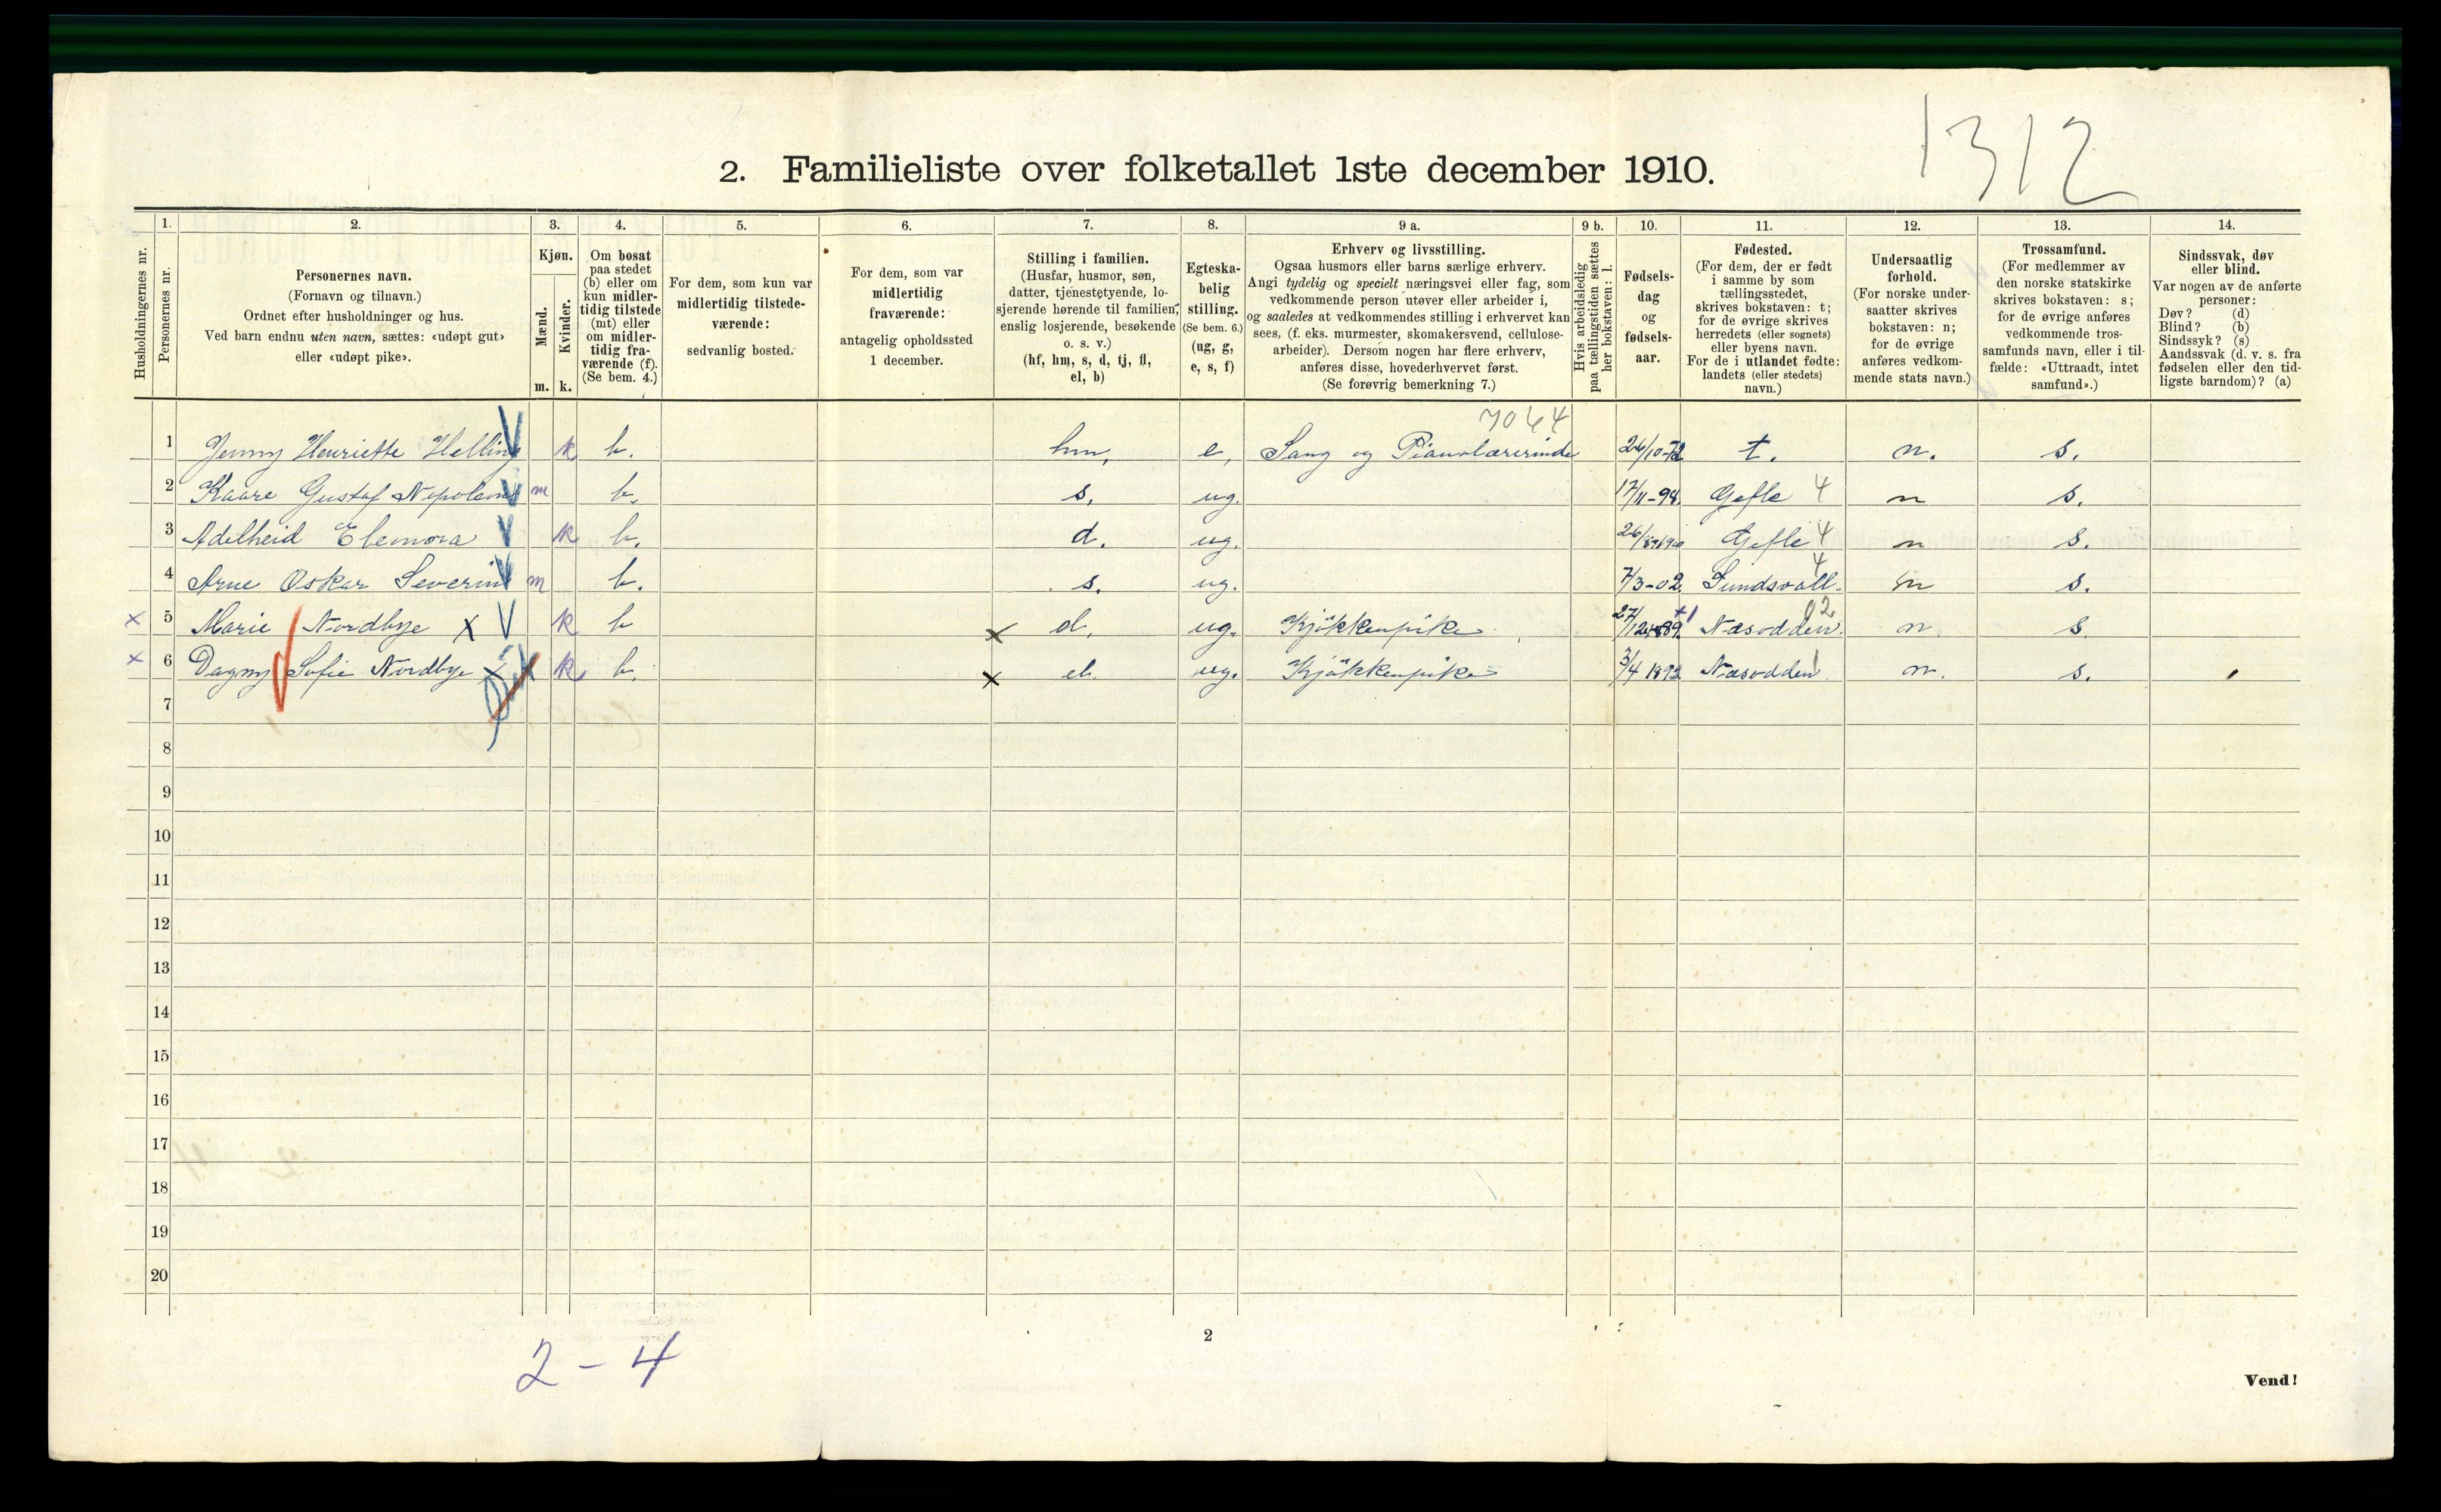 1312
2. Familieliste over folketallet 1ste december 1910.
Husholdningernes nr.
1.
Personernes nr.
2.
Personernes navn.
(Fornavn og tilnavn.)
Ordnet efter husholdninger og hus.
Ved barn endnu uten navn, sættes: «udøpt gut»
eller «udøpt pike».
3.
Kjøn.
Mænd.
m.
Kvinder.
k.
4.
Om bosat
paa stedet
(b) eller om
kun midler-
tidig tilstede
(mt) eller
om midler-
tidig fra-
værende (f).
(Se bem. 4.)
5.
For dem, som kun var
midlertidig tilstede-
værende:
sedvanlig bosted.
6.
For dem, som var
midlertidig
fraværende:
antagelig opholdssted
1 december.
7.
Stilling i familien.
(Husfar, husmor, søn,
datter, tjenestetyende, lo-
sjerende hørende til familien,
enslig losjerende, besøkende
o. s. v.)
(hf, hm, s, d, tj, fl,
el, b)
8.
Egteska-
belig
stilling.
(Se bem. 6.)
(ug, g,
e, s, f)
9 a.
Erhverv og livsstilling.
Ogsaa husmors eller barns særlige erhverv.
Angi tydelig og specielt næringsvei eller fag, som
vedkommende person utøver eller arbeider i,
og saaledes at vedkommendes stilling i erhvervet kan
sees, (f. eks. murmester, skomakersvend, cellulose-
arbeider). Dersom nogen har flere erhverv,
anføres disse, hovederhvervet først.
(Se forøvrig bemerkning 7.)
9 b.
Hvis arbeidsledig
paa tællingstiden sættes
her bokstaven: l.
10.
Fødsels-
dag
og
fødsels-
aar.
11.
Fødested.
(For dem, der er født
i samme by som
tællingsstedet,
skrives bokstaven: t;
for de øvrige skrives
herredets (eller sognets)
eller byens navn.
For de i utlandet fødte:
landets (eller stedets)
navn.)
12.
Undersaatlig
forhold.
(For norske under-
saatter skrives
bokstaven: n;
for de øvrige
anføres vedkom-
mende stats navn.)
13.
Trossamfund.
(For medlemmer av
den norske statskirke
skrives bokstaven: s;
for de øvrige anføres
vedkommende tros-
samfunds navn, eller i til-
fælde: «Uttraadt, intet
samfund».)
14.
Sindssvak, døv
eller blind.
Var nogen av de anførte
personer:
Døv? (d)
Blind? (b)
Sindssyk? (s)
Aandssvak (d. v. s. fra
fødselen eller den tid-
ligste barndom)? (a)
7044
1 Jenny Henriette Helling k b. hm, e, Sang og Pianolærerinde 26/10-72 t. n. s.
2 Kaare Gustaf Nepolen m b. s. ug. 17/11-98. Gefle 4 n s.
3 Adelheid Eleonora k b. d. ug. Gefle 4 n s.
4 Arne Oskar Severin m b. s. ug. 7/3-02. Sundsvall. 4 n s.
x 5 Marie Nordbye X k b x el. ug. Kjøkkenpike 27/12 1889. Næsodden. 02 n. s
x 6 Dagny Sofie Nordbye x k b. x el. ug. Kjøkkenpike 3/4 1892. Næsodden n. s.
7
8
9
10
11
12
13
14
15
16
17
18
19
20
2
2 - 4
Vend!